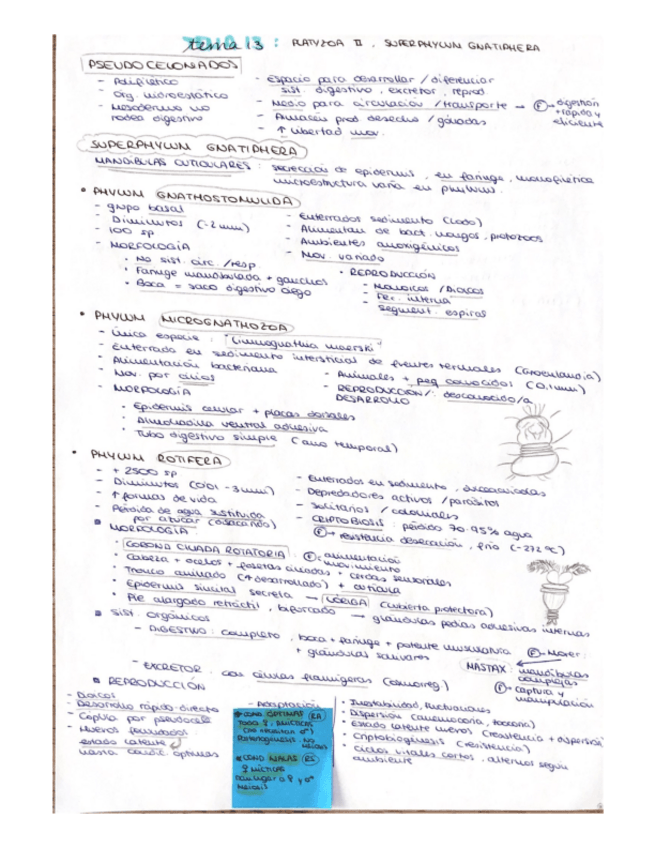 tema 13 : PLATYZOA II, SUPERPHYLUM GNATIPHERA
PSEUDOCELOMADOS
- Polifilético
- Org. hidroestático
- Mesodermo no rodea digestivo
- Espacio para desarrollar / diferenciar
sist. digestivo, excretor, reprod
- Medio para circulación / transporte → F digestión
+ rápida y
eficiente
- Almacén prod. desecho / gónadas
- ↑ libertad mov.
SUPERPHYLUM GNATIPHERA
MANDIBULAS CUTICULARES : secreción de epidermis, en faringe, monofilética
microestructura varía en phylums.
• PHYLUM GNATHOSTOMULIDA
- grupo basal
- Diminutos (~2mm)
- 100 sp
- MORFOLOGÍA
• No sist. circ. /resp.
• Faringe mandibulada + ganchos
• Boca = saco digestivo ciego
- Enterrados sedimento (lodo)
- Alimentan de bact. hongos, protozoos
- Ambientes
- Mov. variado
• REPRODUCCIÓN
- Monoicos / Dioicos
- Fec. interna
- Segment. espiral
• PHYLUM MICROGNATHOZOA
- única especie : "Limnognathia maerski"
- enterrado en sedimento intersticial de fuentes termales (Groenlandia)
- Alimentación bacteriana
- Mov. por cilios
- MORFOLOGÍA
- Animales + peq conocidos (0,1mm)
- REPRODUCCIÓN/: desconocido/a
DESARROLLO
• Epidermis celular + placas dorsales
• Almohadilla ventral adhesiva
• Tubo digestivo simple (ano temporal)
• PHYLUM ROTIFERA
- + 2500 sp
- Diminutos (0,01 - 3mm)
- ↑ formas de vida
- Pérdida de agua sustituida
por azúcar
- Enterrados en sedimento,
- Depredadores activos / parásitos
- Solitarios / coloniales
- CRIPTOBIOSIS : pérdida 70-95% agua
F→ resistencia desecación, frío (-272 ºC)
■ MORFOLOGÍA:
• CORONA CILIADA ROTATORIA : F: alimentación
movimiento
• Cabeza + ocelos + fosetas ciliadas + cerdas sensoriales
• Tronco anillado (+ desarrollado) + cutícula
• Epidermis sincitial secreta → LÓRIGA (cubierta protectora)
• Pie alargado retráctil, bifurcado → glándulas pedias adhesivas internas
■ Sist. orgánicos
- DIGESTIVO : completo, boca + faringe + potente musculatura F- Moler.
+ glándulas salivares
MASTAX : mandíbulas
complejas
F- captura y
manipulación
- EXCRETOR : con células flamígeras (osmorreg.)
■ REPRODUCCIÓN
- Dioicos
- Desarrollo rápido directo
- Cópula por pseudocele
- Huevos fecundados :
estado latente
hasta condic. óptimas
- Adaptación
* COND ÓPTIMAS (RA)
TODO ♀ AMICTICAS
(no necesitan ♂)
Partenogénesis. No
meiosis
* COND MALAS (RS)
♀ MICTICAS
♀ y ♂
Meiosis
• Inestabilidad, fluctuaciones
• Dispersión (anemocoria, zoocoria)
• Estado latente huevos (resistencia + dispersión)
• (resistencia)
• Ciclos vitales cortos, alternos según
ambiente